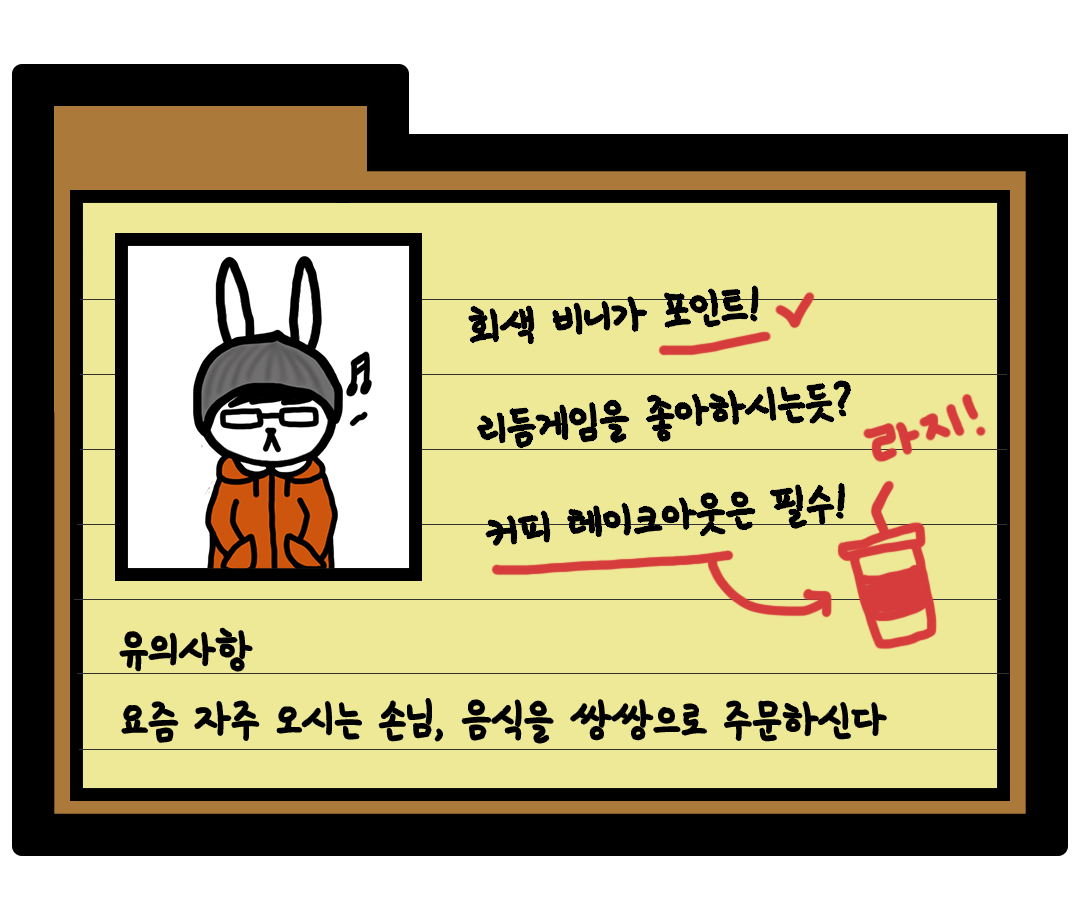 회색 비니가 포인트!
리듬게임을 좋아하시는듯?
라지!
커피 테이크아웃은 필수!
유의사항
요즘 자주 오시는 손님, 음식을 쌍쌍으로 주문하신다